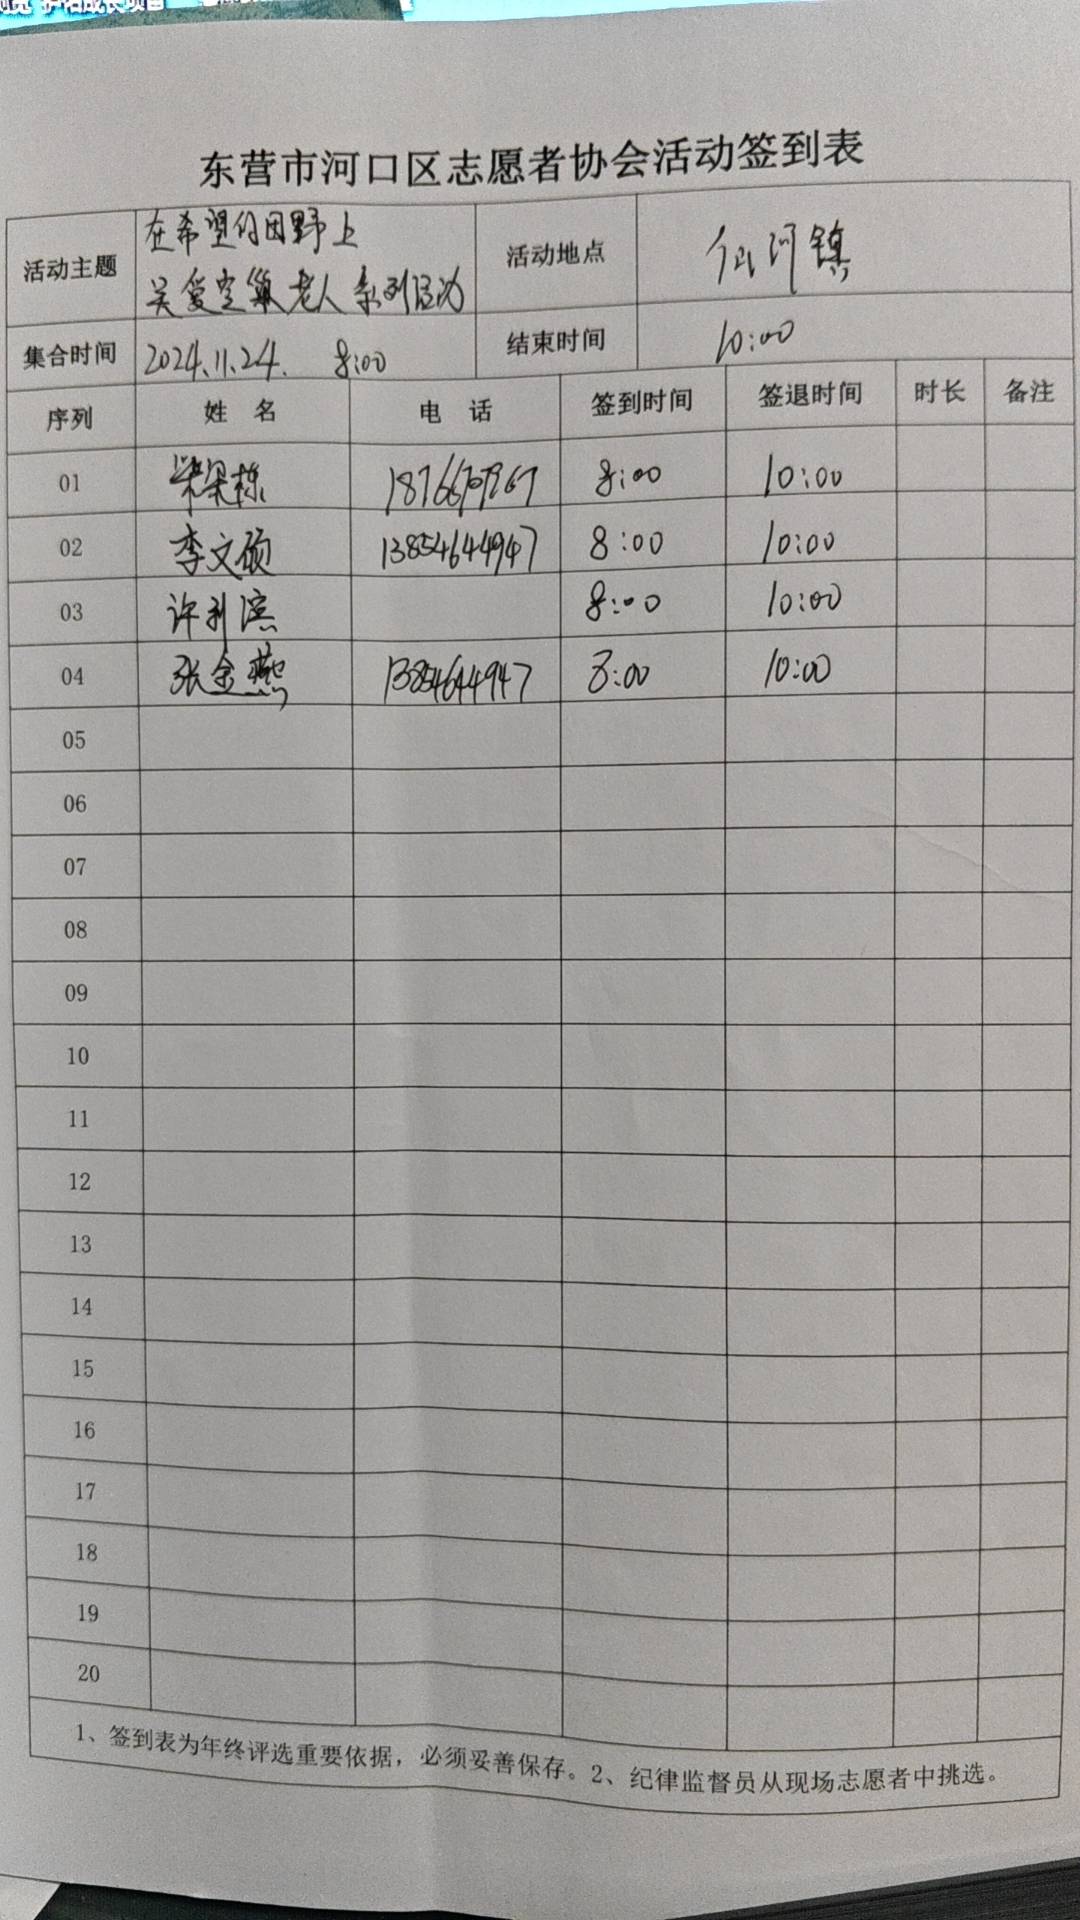 护苗成长项目
东营市河口区志愿者协会活动签到表
活动主题 在希望的田野上 活动地点 仙河镇
关爱空巢老人系列活动
集合时间 2024.11.24. 8:00 结束时间 10:00
序列 姓名 电话 签到时间 签退时间 时长 备注
01 8:00 10:00
02 李文硕 13854644947 8:00 10:00
03 许利滨 8:00 10:00
04 张金燕 13854644947 8:00 10:00
05
06
07
08
09
10
11
12
13
14
15
16
17
18
19
20
1、签到表为年终评选重要依据，必须妥善保存。2、纪律监督员从现场志愿者中挑选。